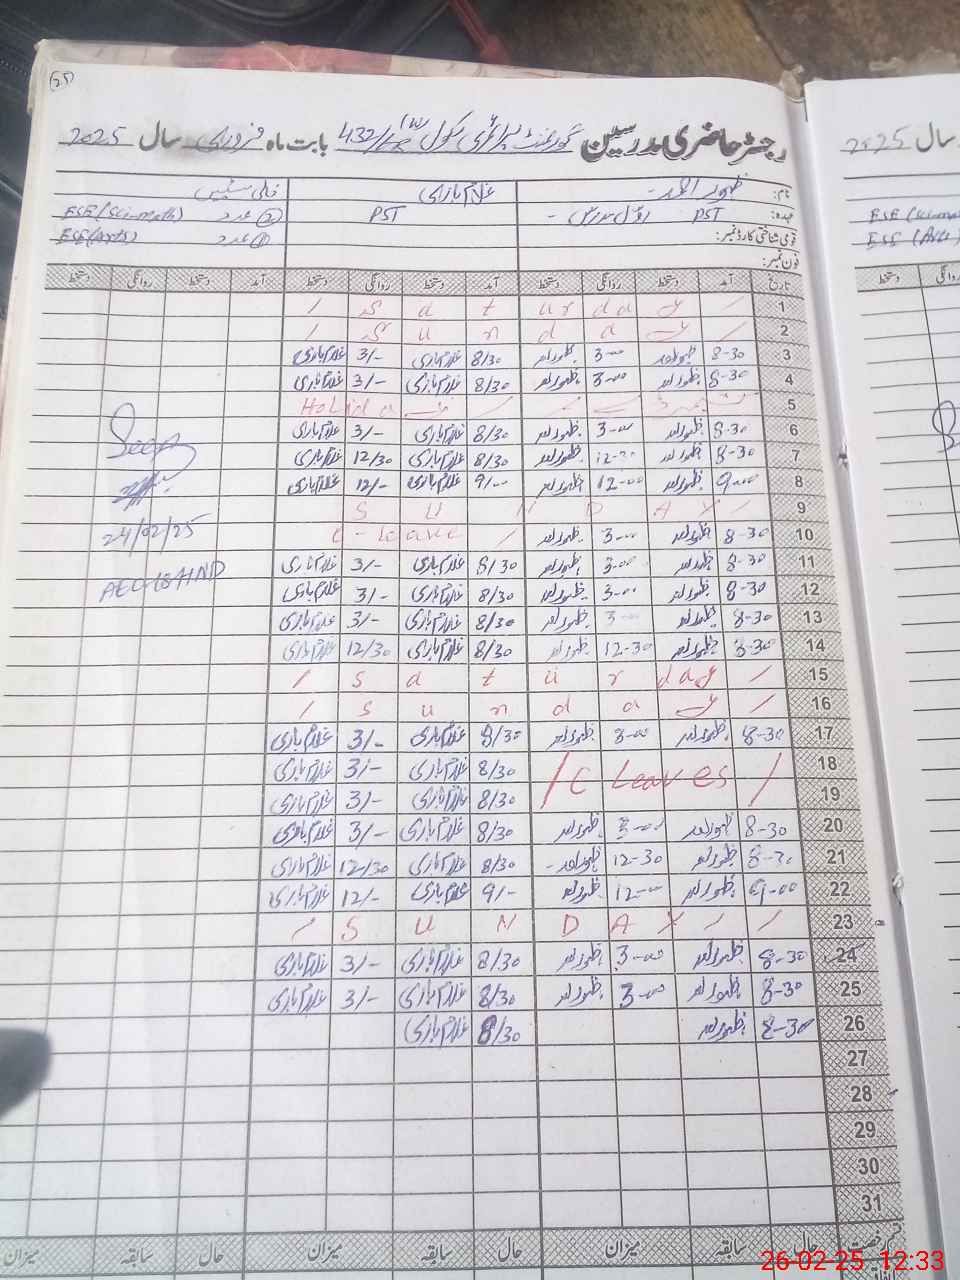 رجسٹر حاضری مدرسین گورنمنٹ پرائمری سکول 432/ بابت ماہ فروری سال 2025
نام: ظہور احمد غلام باری خالی سیٹیں
عہدہ: PST PST ESE (Sci-math) عدد
قومی شناختی کارڈ نمبر: ESE (Arts) عدد
فون نمبر:
تاریخ آمد دستخط روانگی دستخط آمد دستخط روانگی دستخط آمد دستخط روانگی دستخط
1 / S a t u r d a y /
2 / S u n d a y /
3 8-30 ظہور احمد 3-00 ظہور احمد 8/30 غلام باری 3/- غلام باری
4 8-30 ظہور احمد 3-00 ظہور احمد 8/30 غلام باری 3/- غلام باری
5 Holiday
6 8-30 ظہور احمد 3-00 ظہور احمد 8/30 غلام باری 3/- غلام باری
7 8-30 ظہور احمد 12-30 ظہور احمد 8/30 غلام باری 12/30 غلام باری
8 9-00 ظہور احمد 12-00 ظہور احمد 9/-- غلام باری 12/- غلام باری
9 S U N D A Y /
10 8-30 ظہور احمد 3-00 ظہور احمد C-leave /
24/02/25
11 8-30 ظہور احمد 3-00 ظہور احمد 8/30 غلام باری 3/- غلام باری
12 8-30 ظہور احمد 3-00 ظہور احمد 8/30 غلام باری 3/- غلام باری
13 8-30 ظہور احمد 3-00 ظہور احمد 8/30 غلام باری 3/- غلام باری
14 8-30 ظہور احمد 12-30 ظہور احمد 8/30 غلام باری 12/30 غلام باری
15 / S a t u r d a y /
16 / S u n d a y /
17 8-30 ظہور احمد 3-00 ظہور احمد 8/30 غلام باری 3/- غلام باری
18 / C leaves / 8/30 غلام باری 3/- غلام باری
19 8/30 غلام باری 3/- غلام باری
20 8-30 ظہور احمد 3-00 ظہور احمد 8/30 غلام باری 3/- غلام باری
21 8-30 ظہور احمد 12-30 ظہور احمد 8/30 غلام باری 12/30 غلام باری
22 9-00 ظہور احمد 12-00 ظہور احمد 9/- غلام باری 12/- غلام باری
23 / S U N D A Y / /
24 8-30 ظہور احمد 3-00 ظہور احمد 8/30 غلام باری 3/- غلام باری
25 8-30 ظہور احمد 3-00 ظہور احمد 8/30 غلام باری 3/- غلام باری
26 8-30 ظہور احمد 8/30 غلام باری
27
28
29
30
31
حال سابقہ میزان حال سابقہ میزان حال سابقہ میزان
سال 2025
26-02-25 12:33